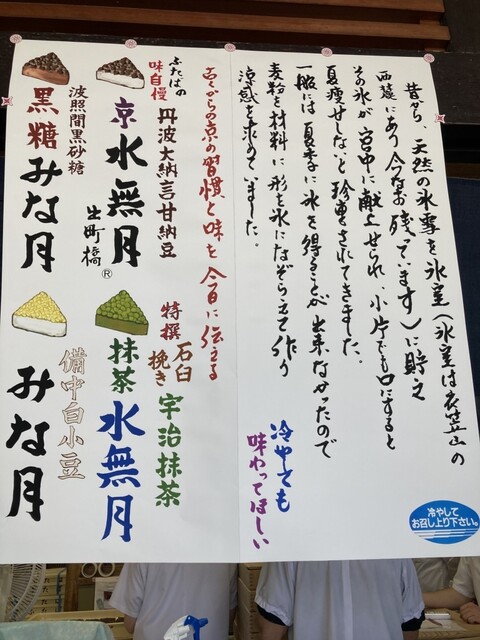 昔から、天然の氷雪を氷室(氷室は衣笠山の
西麓にあり今なお残っています)に貯え
その氷が宮中に献上せられ、小片でも口にすると
夏痩せしないと珍重されてきました。
一般には夏季に氷を得ることが出来なかったので
麦粉を材料に形を氷になぞらえて作り
涼感を求めていました。
冷やしても
味わってほしい
冷やして
お召し上り下さい。
古くからの京の習慣と味を今日に伝える
ふたばの
味自慢
丹波大納言甘納豆
京水無月
出町橋®
波照間黒砂糖
黒糖みな月
特撰
石臼
挽き
宇治抹茶
抹茶水無月
備中白小豆
みな月